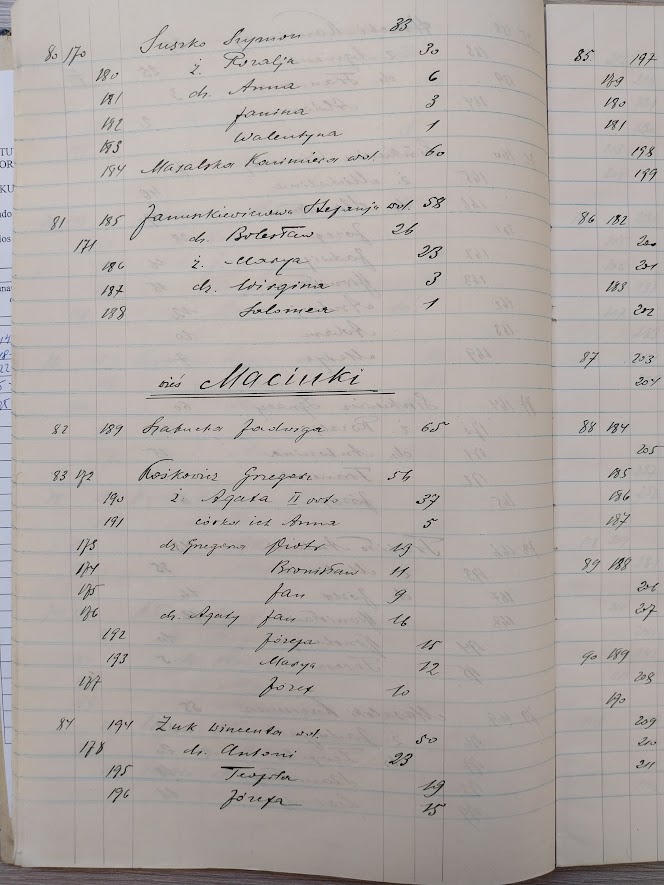 80 170 Suszko Szymon 33
180 ż. Rozalja 30
181 dz. Anna 6
182 Janina 3
183 Walentyna 1
184 Masalska Kazimiera wd. 60
81 185 Januszkiewiczowa Stefanja wd. 58
171 dz. Bolesław 26
186 ż. Marya 23
187 dz. Wirginia 3
188 Salomea 1
wieś Maciuki
82 189 Szakucha Jadwiga 65
83 172 Kośkowicz Grzegorz 54
190 ż. Agata II voto 37
191 córka ich Anna 5
173 dz. Grzegorza Piotr 19
174 Bronisław 11
175 Jan 9
176 dz. Agaty Jan 16
192 Józefa 15
193 Marya 12
177 Józef 10
84 194 Żuk Wincenta wd. 50
178 dz. Antoni 23
195 Teofila 19
196 Józefa 15
85 197
179
180
181
198
199
86 182
200
201
183
202
87 203
204
88 184
205
185
186
187
89 188
206
207
90 189
208
190
209
210
211